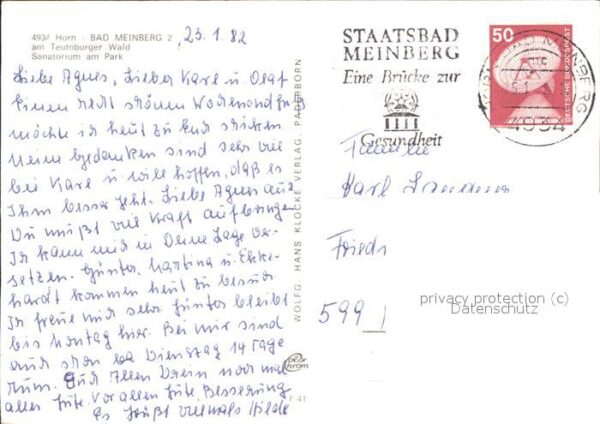 4934 Horn - BAD MEINBERG 2
am Teutoburger Wald
Sanatorium am Park
23.1.82
Liebe Agnes, Lieber Karl u. Olaf
Einen recht schönen Wochenendgruß
möchte ich heut zu Euch schicken
Meine Gedanken sind sehr viel
bei Karl u. will hoffen, daß es
Ihm besser geht. Liebe Agnes auch
Du mußt viel Kraft aufbringen
Ich kann mich in Deine Lage ver-
setzen. Günter, Martina u. Ekke-
hardt kommen heut zu besuch
Ich freue mich sehr Günter bleibt
bis Montag hier. Bei mir sind
auch schon Dienstag 14 Tage
rum. Euch Allen Drein noch mal
alles Gute. Vor allem Gute Besserung
Es grüßt vielmals Hilde
WOLFG. HANS KLOCKE VERLAG, PADERBORN
STAATSBAD
MEINBERG
Eine Brücke zur
Gesundheit
50
DEUTSCHE BUNDESPOST
MEINBERG
4934
Familie
Karl
Friedr
599
privacy protection (c)
Datenschutz